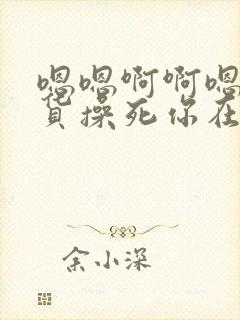 嗯嗯啊啊嗯
操死你在
余小深